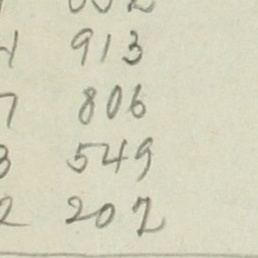 913
7 806
3 549
2 207